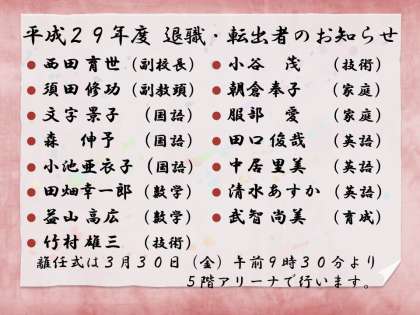 平成29年度 退職・転出者のお知らせ
● 西田 育世（副校長） ● 小谷　茂　（技術）
● 須田 修功（副教頭） ● 朝倉奉子　（家庭）
● 文字 景子　（国語） ● 服部　愛　（家庭）
● 森　伸予　（国語） ● 田口俊哉　（英語）
● 小池亜衣子（国語） ● 中居里美　（英語）
● 田畑幸一郎（数学） ● 清水あすか（英語）
● 益山 高広　（数学） ● 武智尚美　（育成）
● 竹村 雄三　（技術）
離任式は3月30日（金）午前9時30分より
5階アリーナで行います。